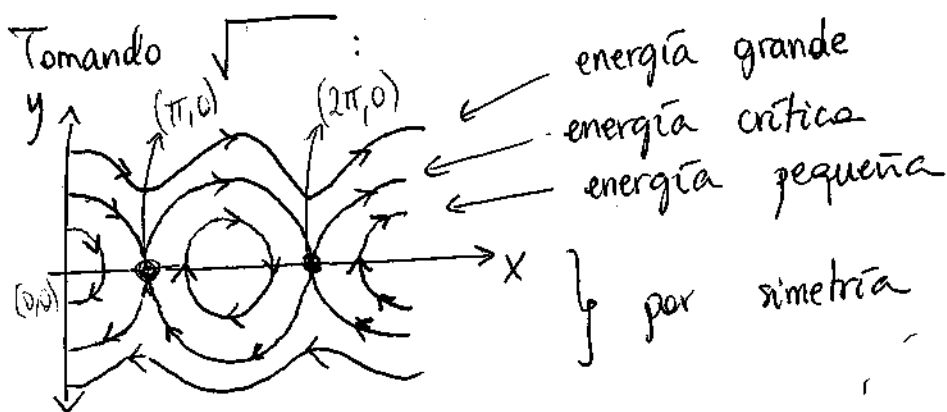 Tomando √ :
energía grande
energía crítica
energía pequeña
y
(π,0)
(2π,0)
x
(0,0)
} por simetría